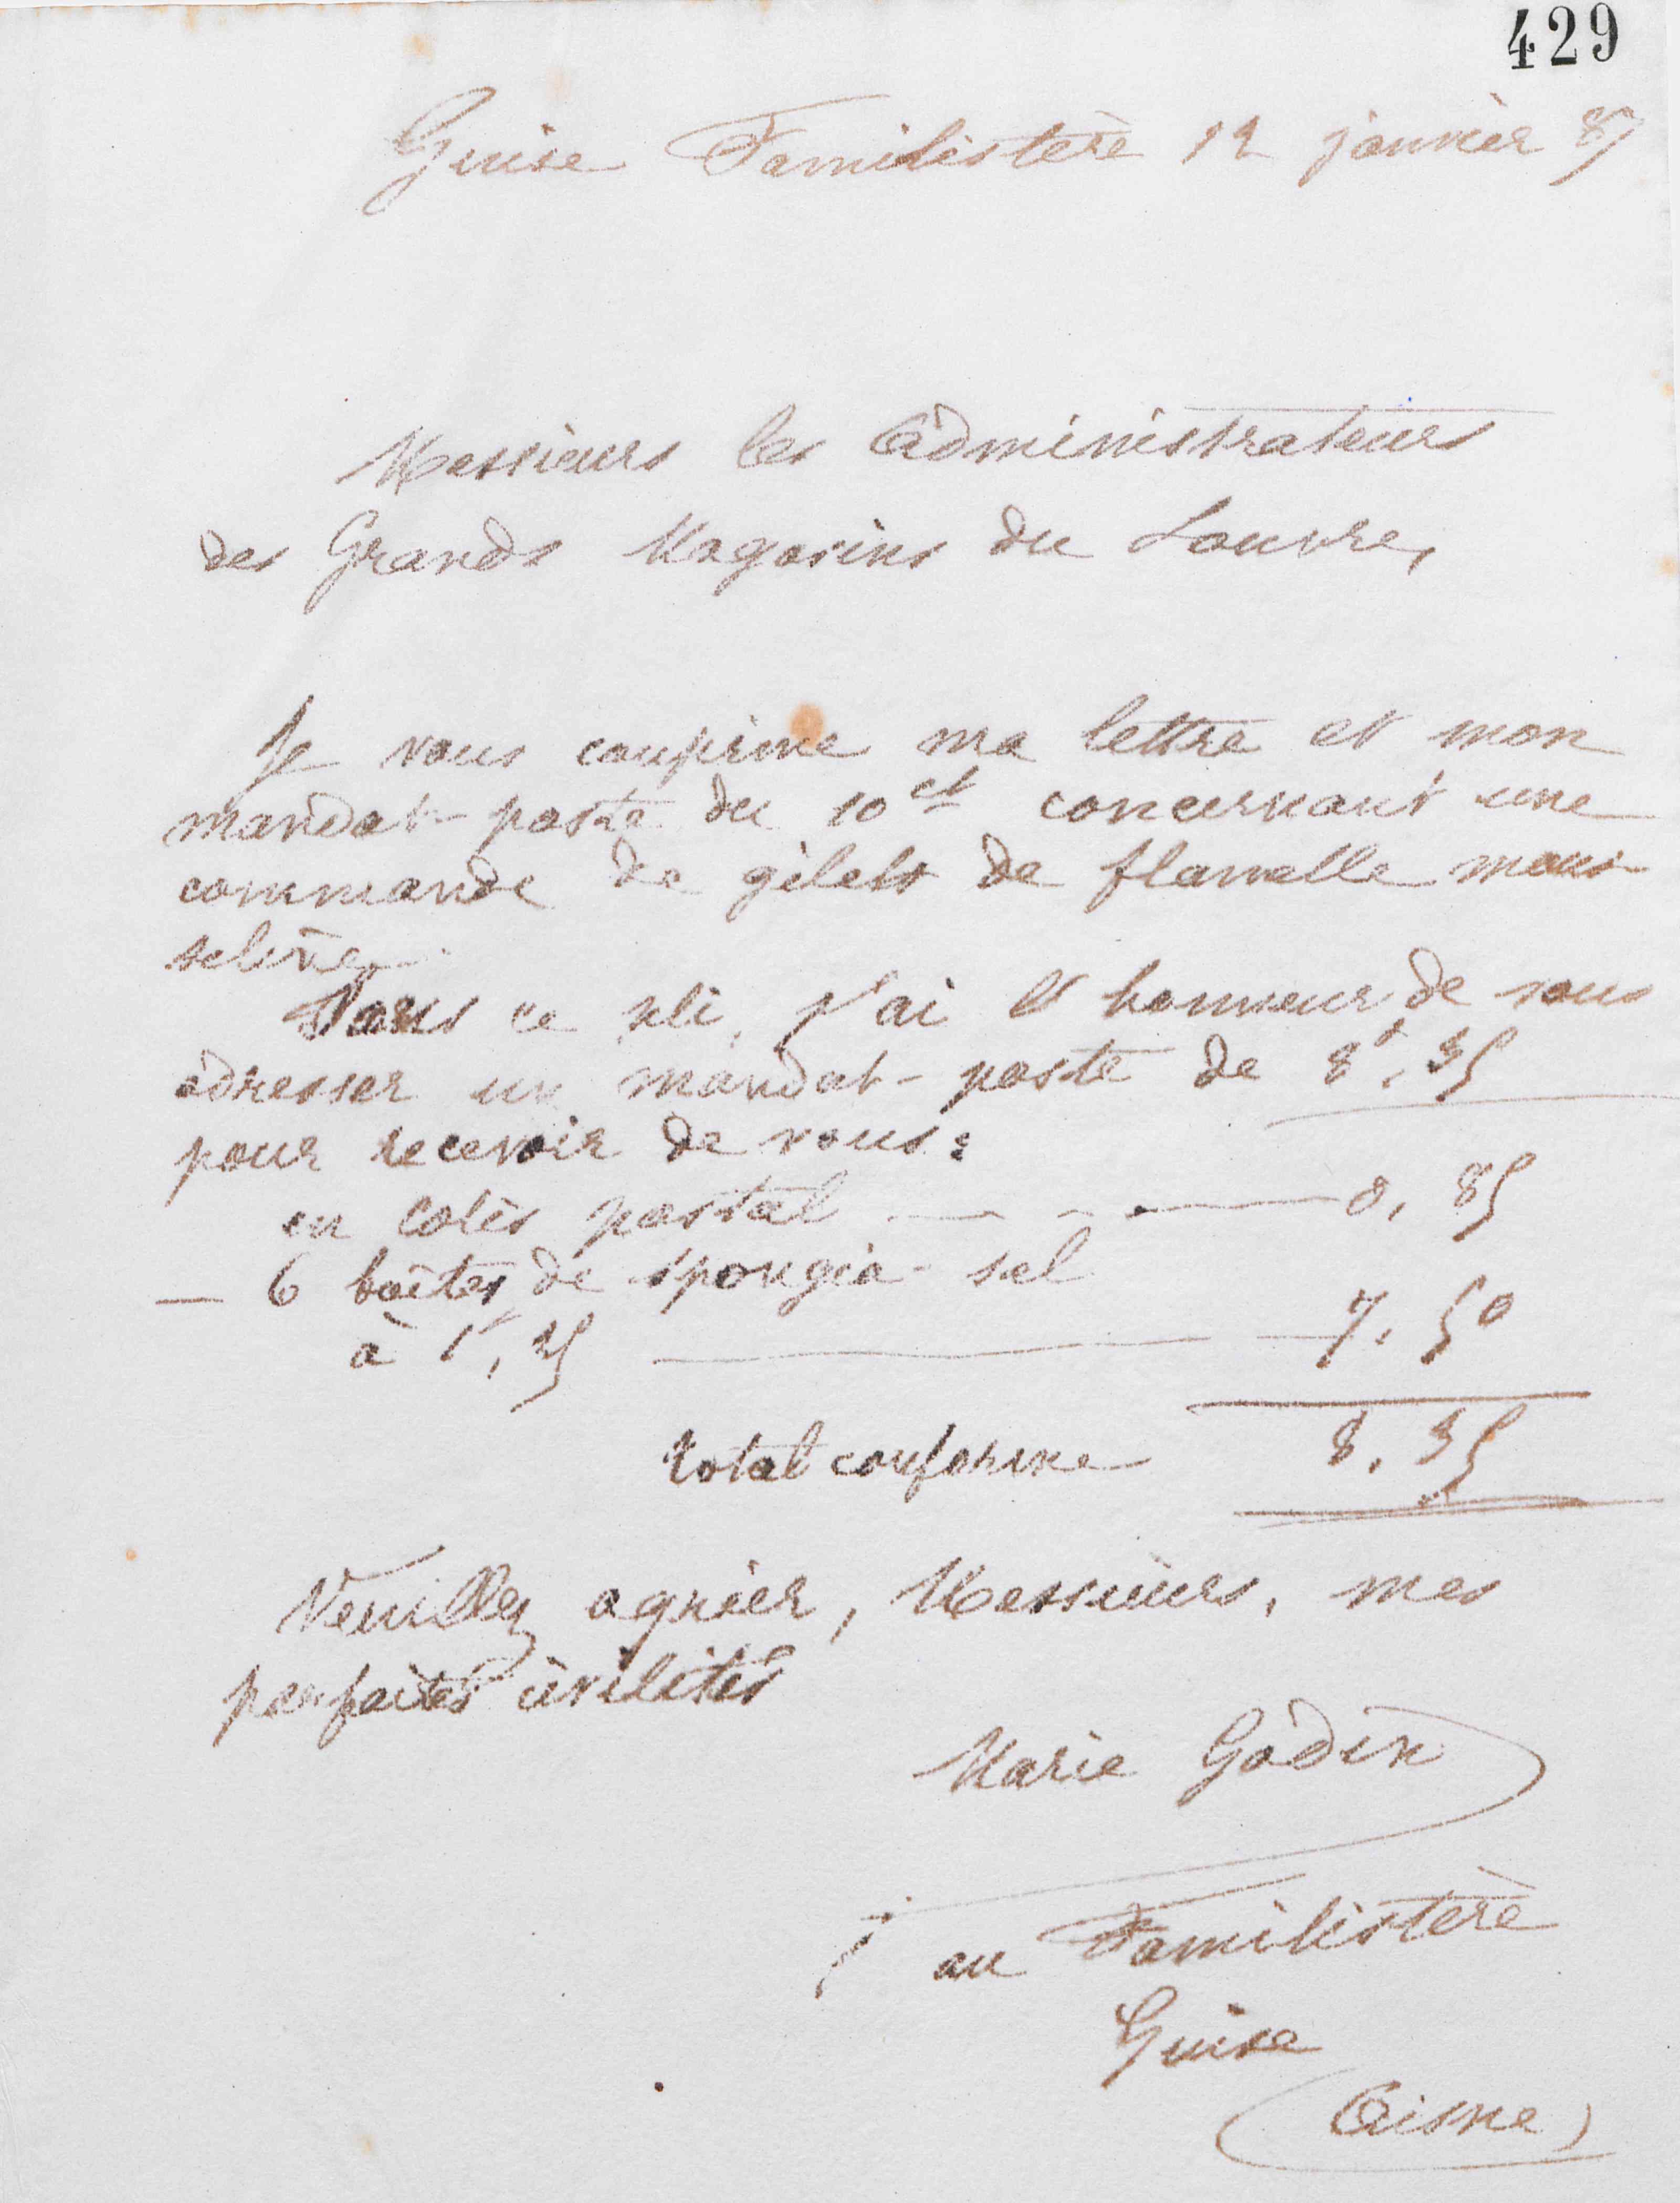 429
Guise Familistère 12 janvier 89
Messieurs les Administrateurs
des Grands Magasins du Louvre,
Je vous confirme ma lettre et mon
mandat-poste du 10 ct concernant une
commande de gilets de flanelle mous-
seline.
Dans ce pli, j'ai l'honneur de vous
adresser un mandat-poste de 8f,35
pour recevoir de vous:
en colis postal — - — 0,85
— 6 boîtes de spongia-sel
à 1f,25 — 7.50
total conforme 8.35
Veuillez agréer, Messieurs, mes
parfaites civilités
Marie Godin
au Familistère
Guise
(Aisne)